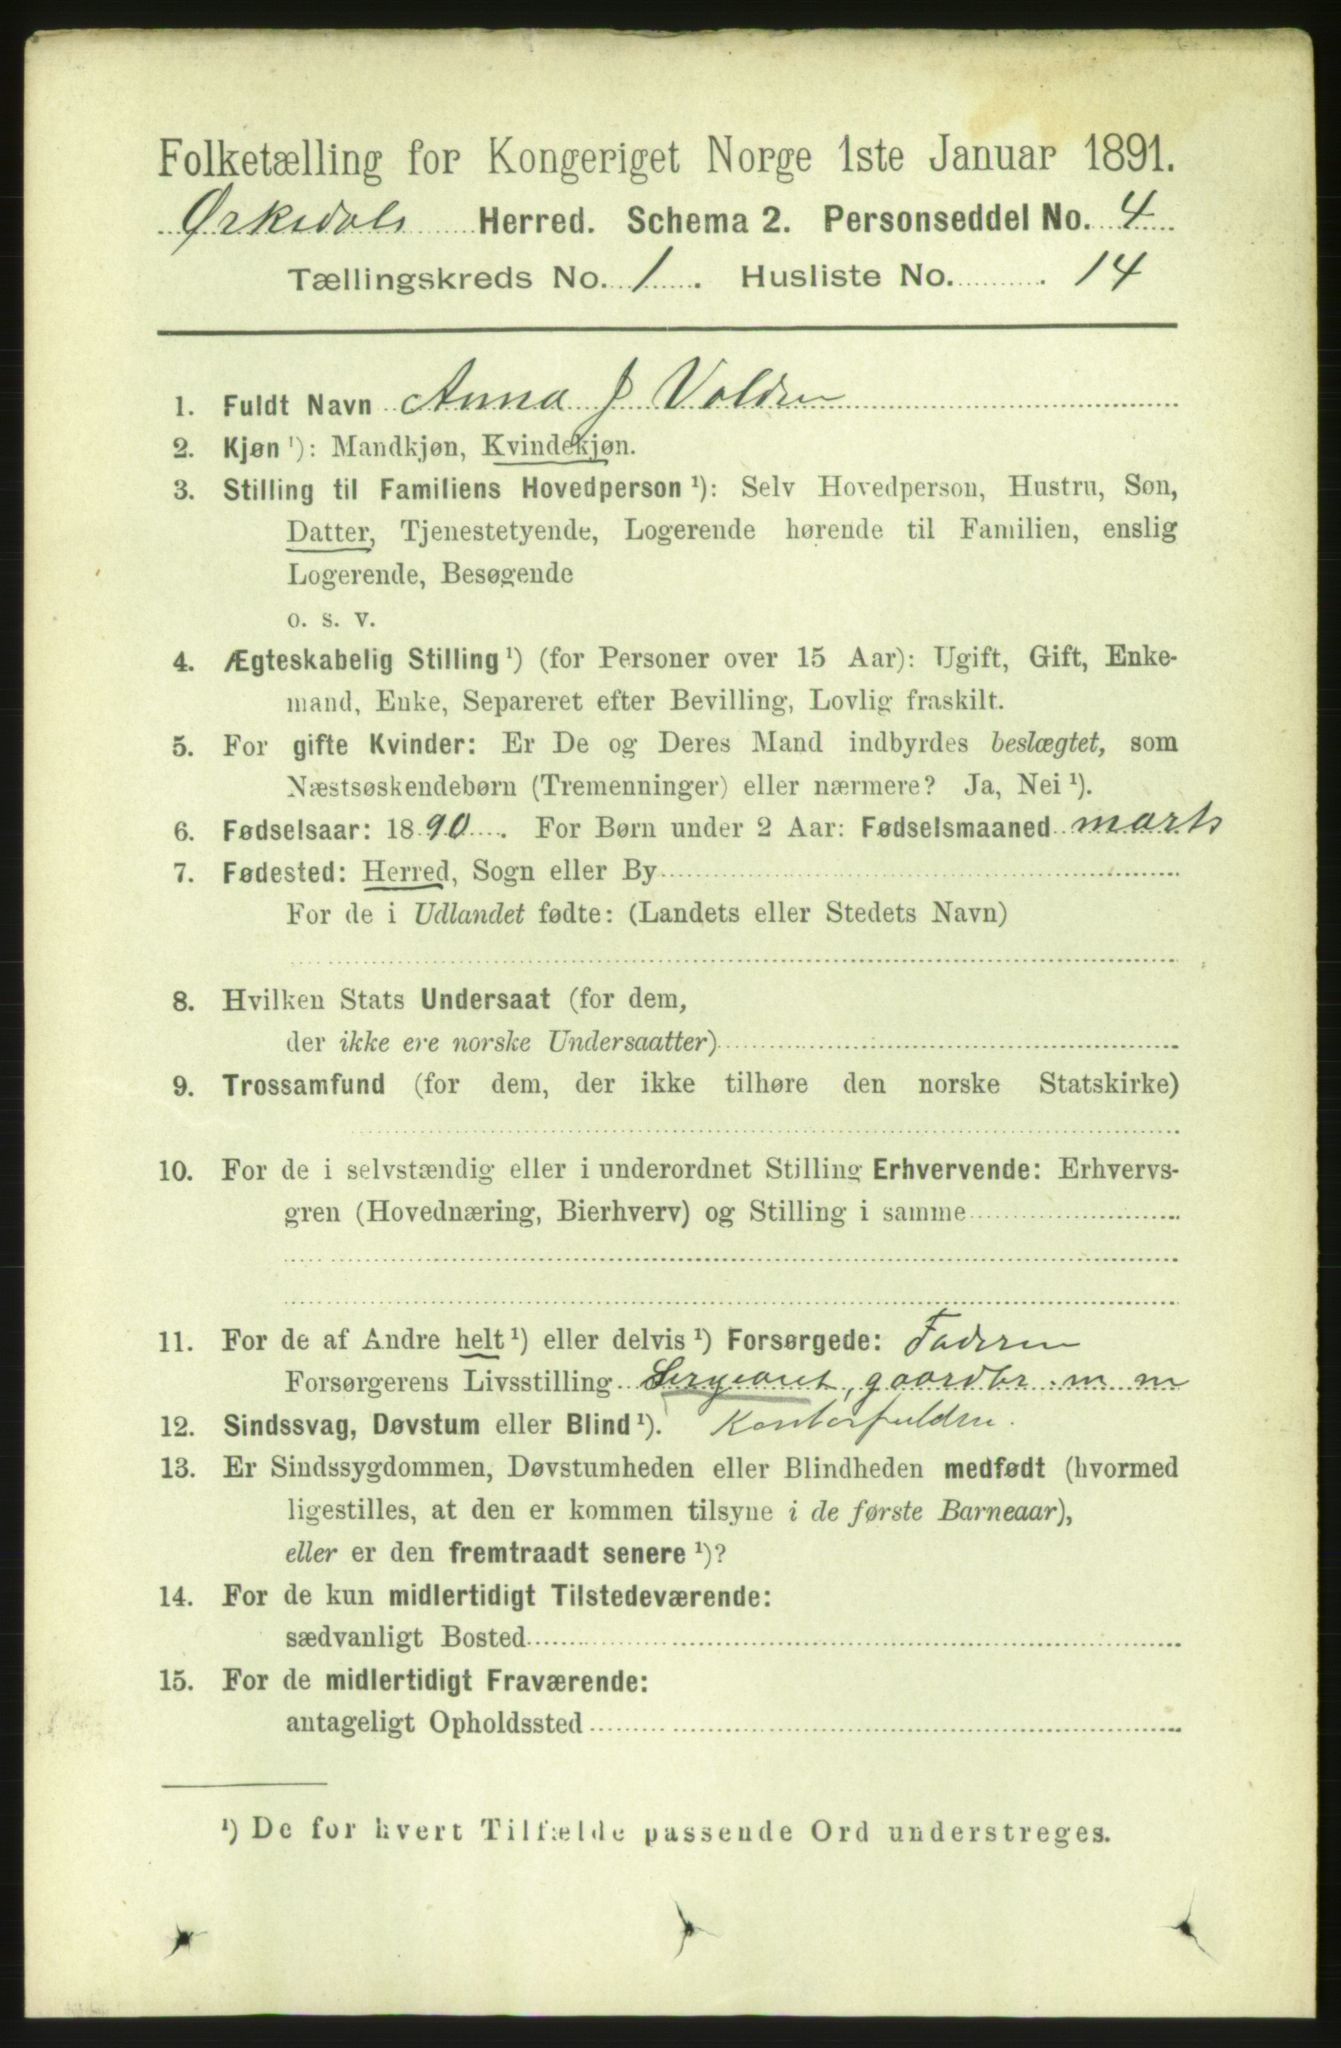 Folketælling for Kongeriget Norge 1ste Januar 1891.
Ørkedals Herred. Schema 2. Personseddel No. 4
Tællingskreds No. 1. Husliste No. 14
1. Fuldt Navn Anna J Volden
2. Kjøn ¹): Mandkjøn, Kvindekjøn.
3. Stilling til Familiens Hovedperson ¹): Selv Hovedperson, Hustru, Søn,
Datter, Tjenestetyende, Logerende hørende til Familien, enslig
Logerende, Besøgende
o. s. v.
4. Ægteskabelig Stilling ¹) (for Personer over 15 Aar): Ugift, Gift, Enke-
mand, Enke, Separeret efter Bevilling, Lovlig fraskilt.
5. For gifte Kvinder: Er De og Deres Mand indbyrdes beslægtet, som
Næstsøskendebørn (Tremenninger) eller nærmere? Ja, Nei ¹).
6. Fødselsaar: 1890. For Børn under 2 Aar: Fødselsmaaned marts
7. Fødested: Herred, Sogn eller By
For de i Udlandet fødte: (Landets eller Stedets Navn)
8. Hvilken Stats Undersaat (for dem,
der ikke ere norske Undersaatter)
9. Trossamfund (for dem, der ikke tilhøre den norske Statskirke)
10. For de i selvstændig eller i underordnet Stilling Erhvervende: Erhvervs-
gren (Hovednæring, Bierhverv) og Stilling i samme
11. For de af Andre helt ¹) eller delvis ¹) Forsørgede: Faderen
Forsørgerens Livsstilling Sergeant, gaardbr. m m
12. Sindssvag, Døvstum eller Blind ¹).
13. Er Sindssygdommen, Døvstumheden eller Blindheden medfødt (hvormed
ligestilles, at den er kommen tilsyne i de første Barneaar),
eller er den fremtraadt senere ¹)?
14. For de kun midlertidigt Tilstedeværende:
sædvanligt Bosted
15. For de midlertidigt Fraværende:
antageligt Opholdssted
¹) De for hvert Tilfælde passende Ord understreges.